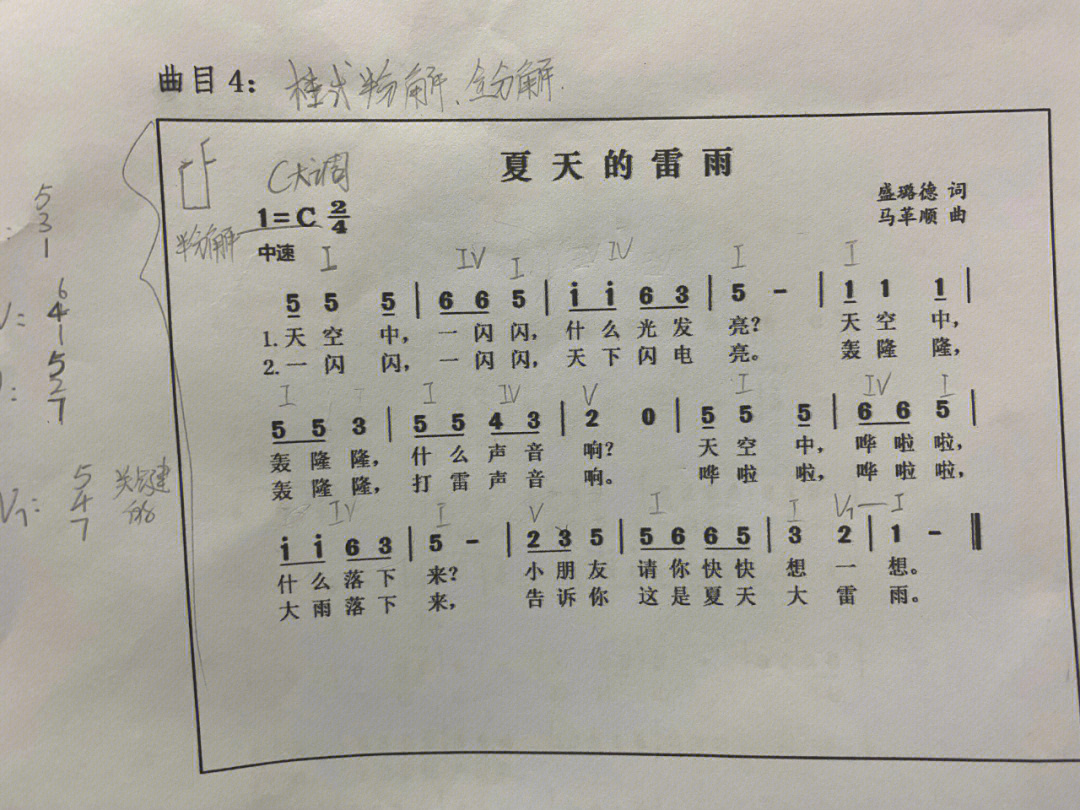 曲目4：柱式半分解、全分解.
夏天的雷雨
C大调
盛璐德 词
1=C 2/4
马革顺 曲
半分解
中速
I IV I IV I I
5 5 5 | 6 6 5 | i i 6 3 | 5 - | 1 1 1 |
1.天空中，一闪闪，什么光发亮？天空中，
2.一闪闪，一闪闪，天下闪电亮。轰隆隆，
I I IV V I IV I
5 5 3 | 5 5 4 3 | 2 0 | 5 5 5 | 6 6 5 |
轰隆隆，什么声音响？天空中，哗啦啦，
轰隆隆，打雷声音响。哗啦啦，哗啦啦，
IV I V I I V7—I
i i 6 3 | 5 - | 2 3 5 | 5 6 6 5 | 3 2 | 1 - ‖
什么落下来？小朋友请你快快想一想。
大雨落下来，告诉你这是夏天大雷雨。
5
3
1
6
4
1
5
2
7
V7:
5
4
7